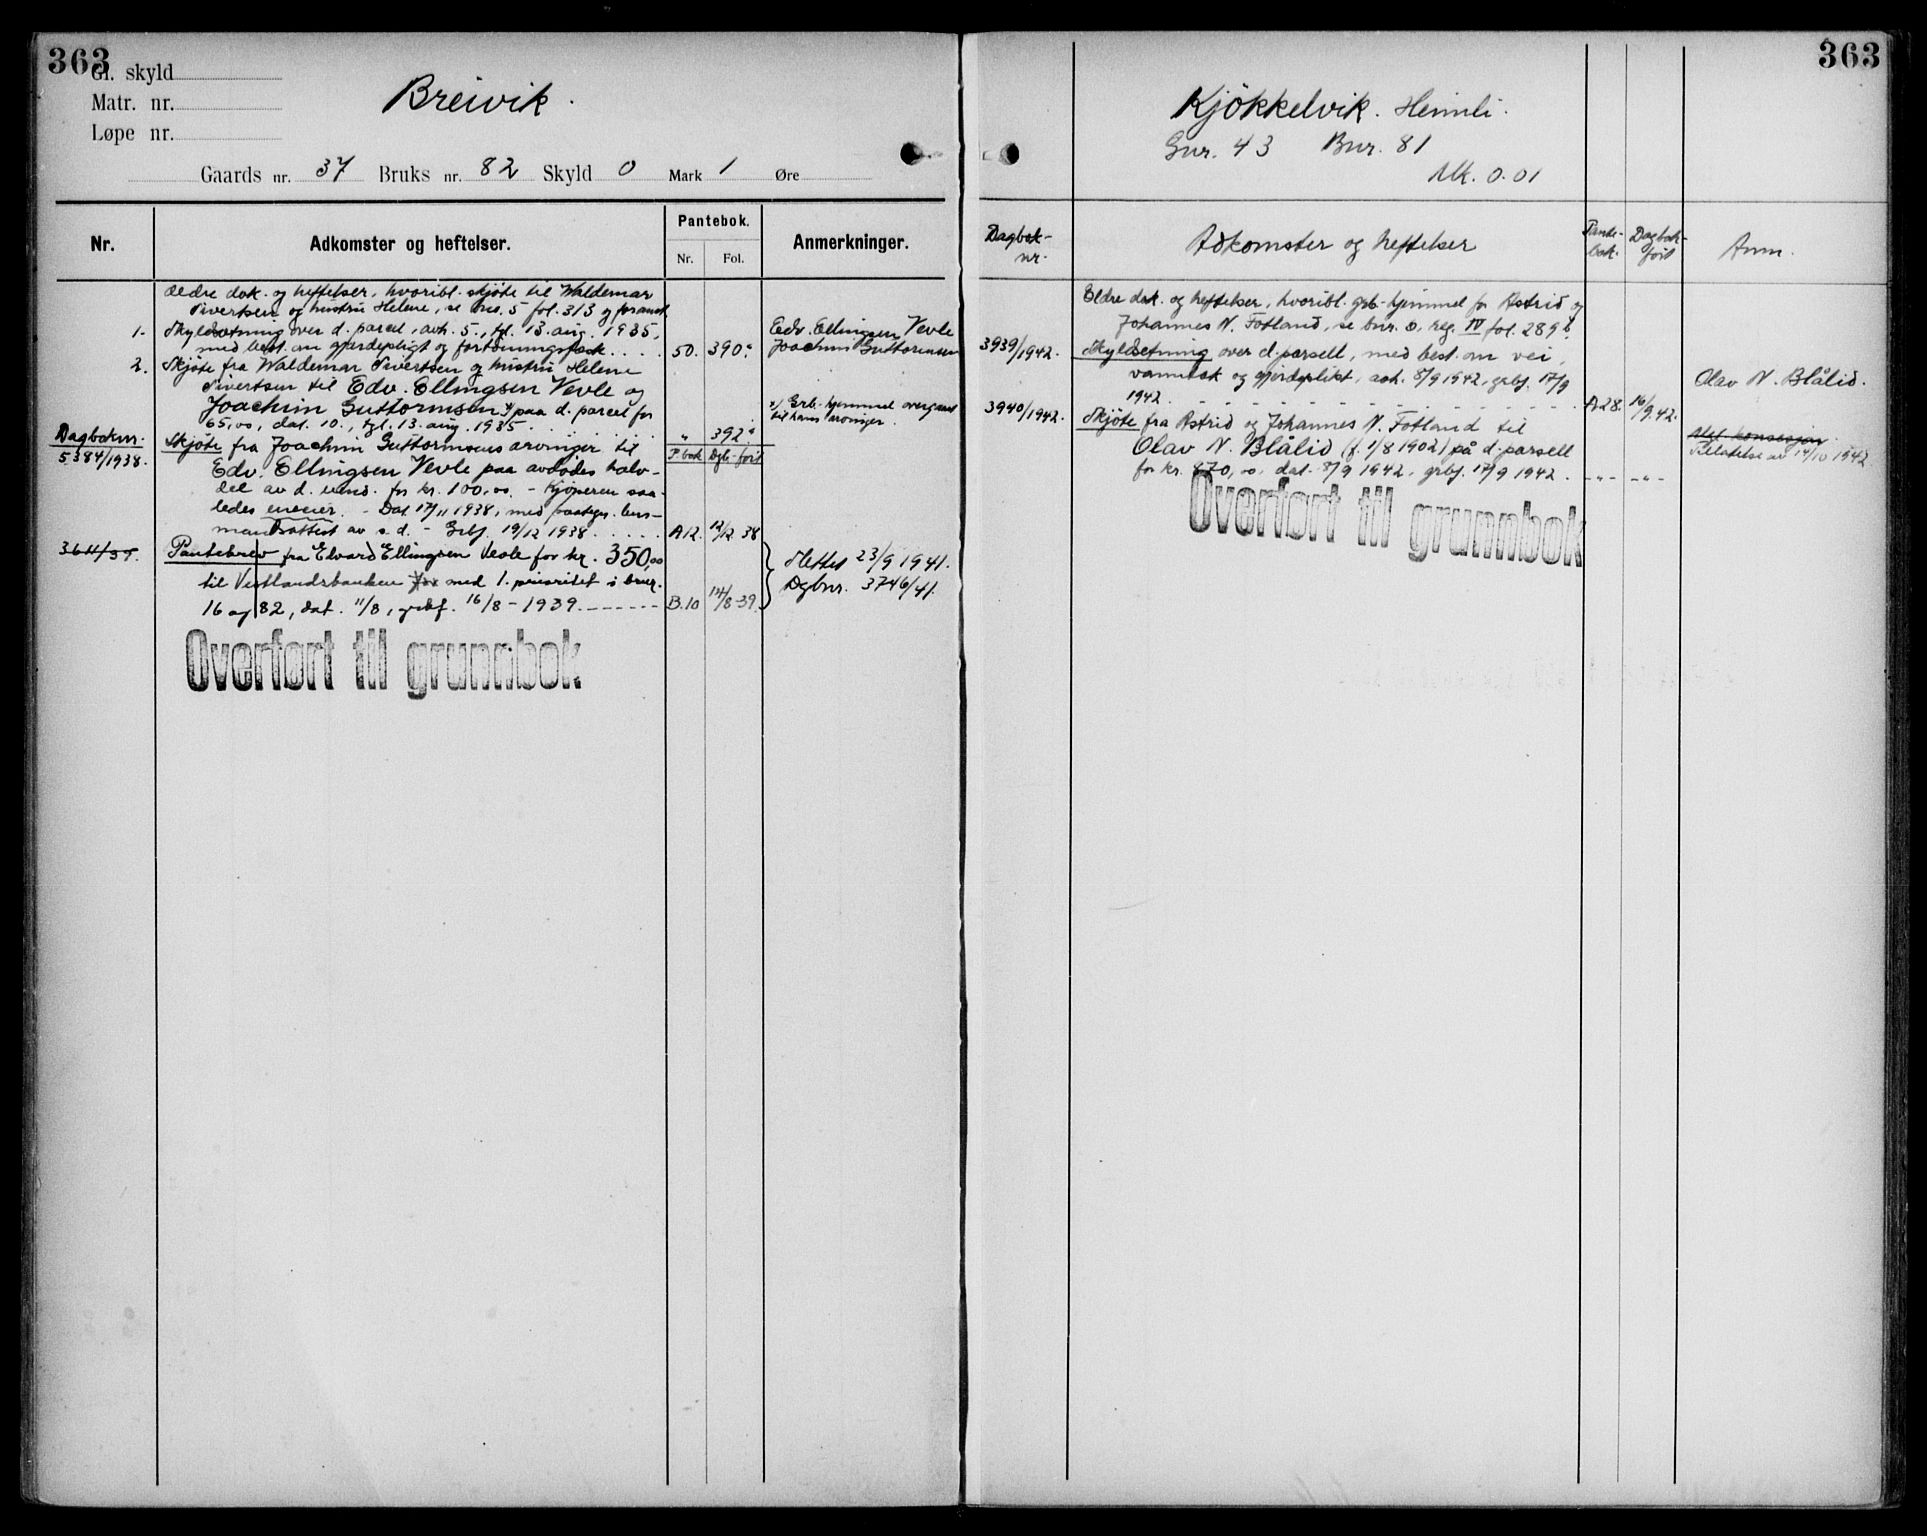 363
Gl. skyld
Matr. nr.
Løpe nr.
Breivik.
Gaards nr. 37 Bruks nr. 82 Skyld 0 Mark 1 Øre
Nr.
Adkomster og heftelser.
Pantebok.
Nr. Fol.
Anmerkninger.
Ældre dok. og heftelser, hvoribl. skjöte til Waldemar
Sivertsen og hustru Helene, se bns. 5 fol. 313 g foranst.
1. Skyldsetning over d. parcel, avh. 5., tgl. 13. aug. 1935,
med best. om gjerdepligt og fortöiningsfæste .... 50. 390.a
Edv. Ellingsen Vevle
Joachim Guttormsen
2. Skjöte fra Waldemar Sivertsen og hustru Helene
Sivertsen til Edv. Ellingsen Vevle og
Joachim Guttormsen x) paa d. parcel for
65,00, dat. 10., tgl. 13. aug. 1935 . . . . " 392.a
x/ Grb.-hjemmel overgaat
til hans arvinger.
Dagboknr. P.bok Dgb.-ført
5384/1938. Skjöte fra Joachim Guttormsens arvinger til
Edv. Ellingsen Vevle paa avdödes halv-
del av d. eiend. for kr. 100,00. - Kjöperen saa-
ledes eneeier. - Dat. 17/11 1938, med paategn. lens-
mandsattest av s.d. - Grbf. 19/12 1938 . . . . . A12. 12/12 38
3611/39. Pantebrev fra Edvard Ellingsen Vevle for kr. 350,00
til Vestlandsbanken for med 1. prioritet i bnr.
16 og 82, dat. 11/8, grbf. 16/8 - 1939. - - - - - - B.10 14/8-39.
Slettet 23/9 1941.
Dgbnr. 3746/41.
Overført til grunnbok
363
Kjökkelvik. Heimli.
Gnr. 43 Bnr. 81
Mk. 0.01
Dagbok-
nr.
Adkomster og heftelser
Pante-
bok.
Dagbok-
ført
Anm.
Eldre dok. og heftelser, hvoribl. grb-hjemmel for Astrid og
Johannes N. Fotland, se bnr. 2, reg. IV fol. 289 b.
3939/1942. Skyldsetning over d. parsell, med best. om vei,
vanntak og gjerdeplikt, avh. 8/9 1942, grbf. 17/9
1942. - - - - - - - - - - A28. 16/9.42.
Olav N. Blålid.
3940/1942. Skjöte fra Astrid og Johannes N. Fotland til
Olav N. Blålid (f. 1/8 1902) på d. parsell
for kr. 870,00, dat. 8/9 1942, grbf. 17/9 1942. - " - - " -
Mgl. konsesjon.
Tillatelse av 14/10 1942
Overført til grunnbok